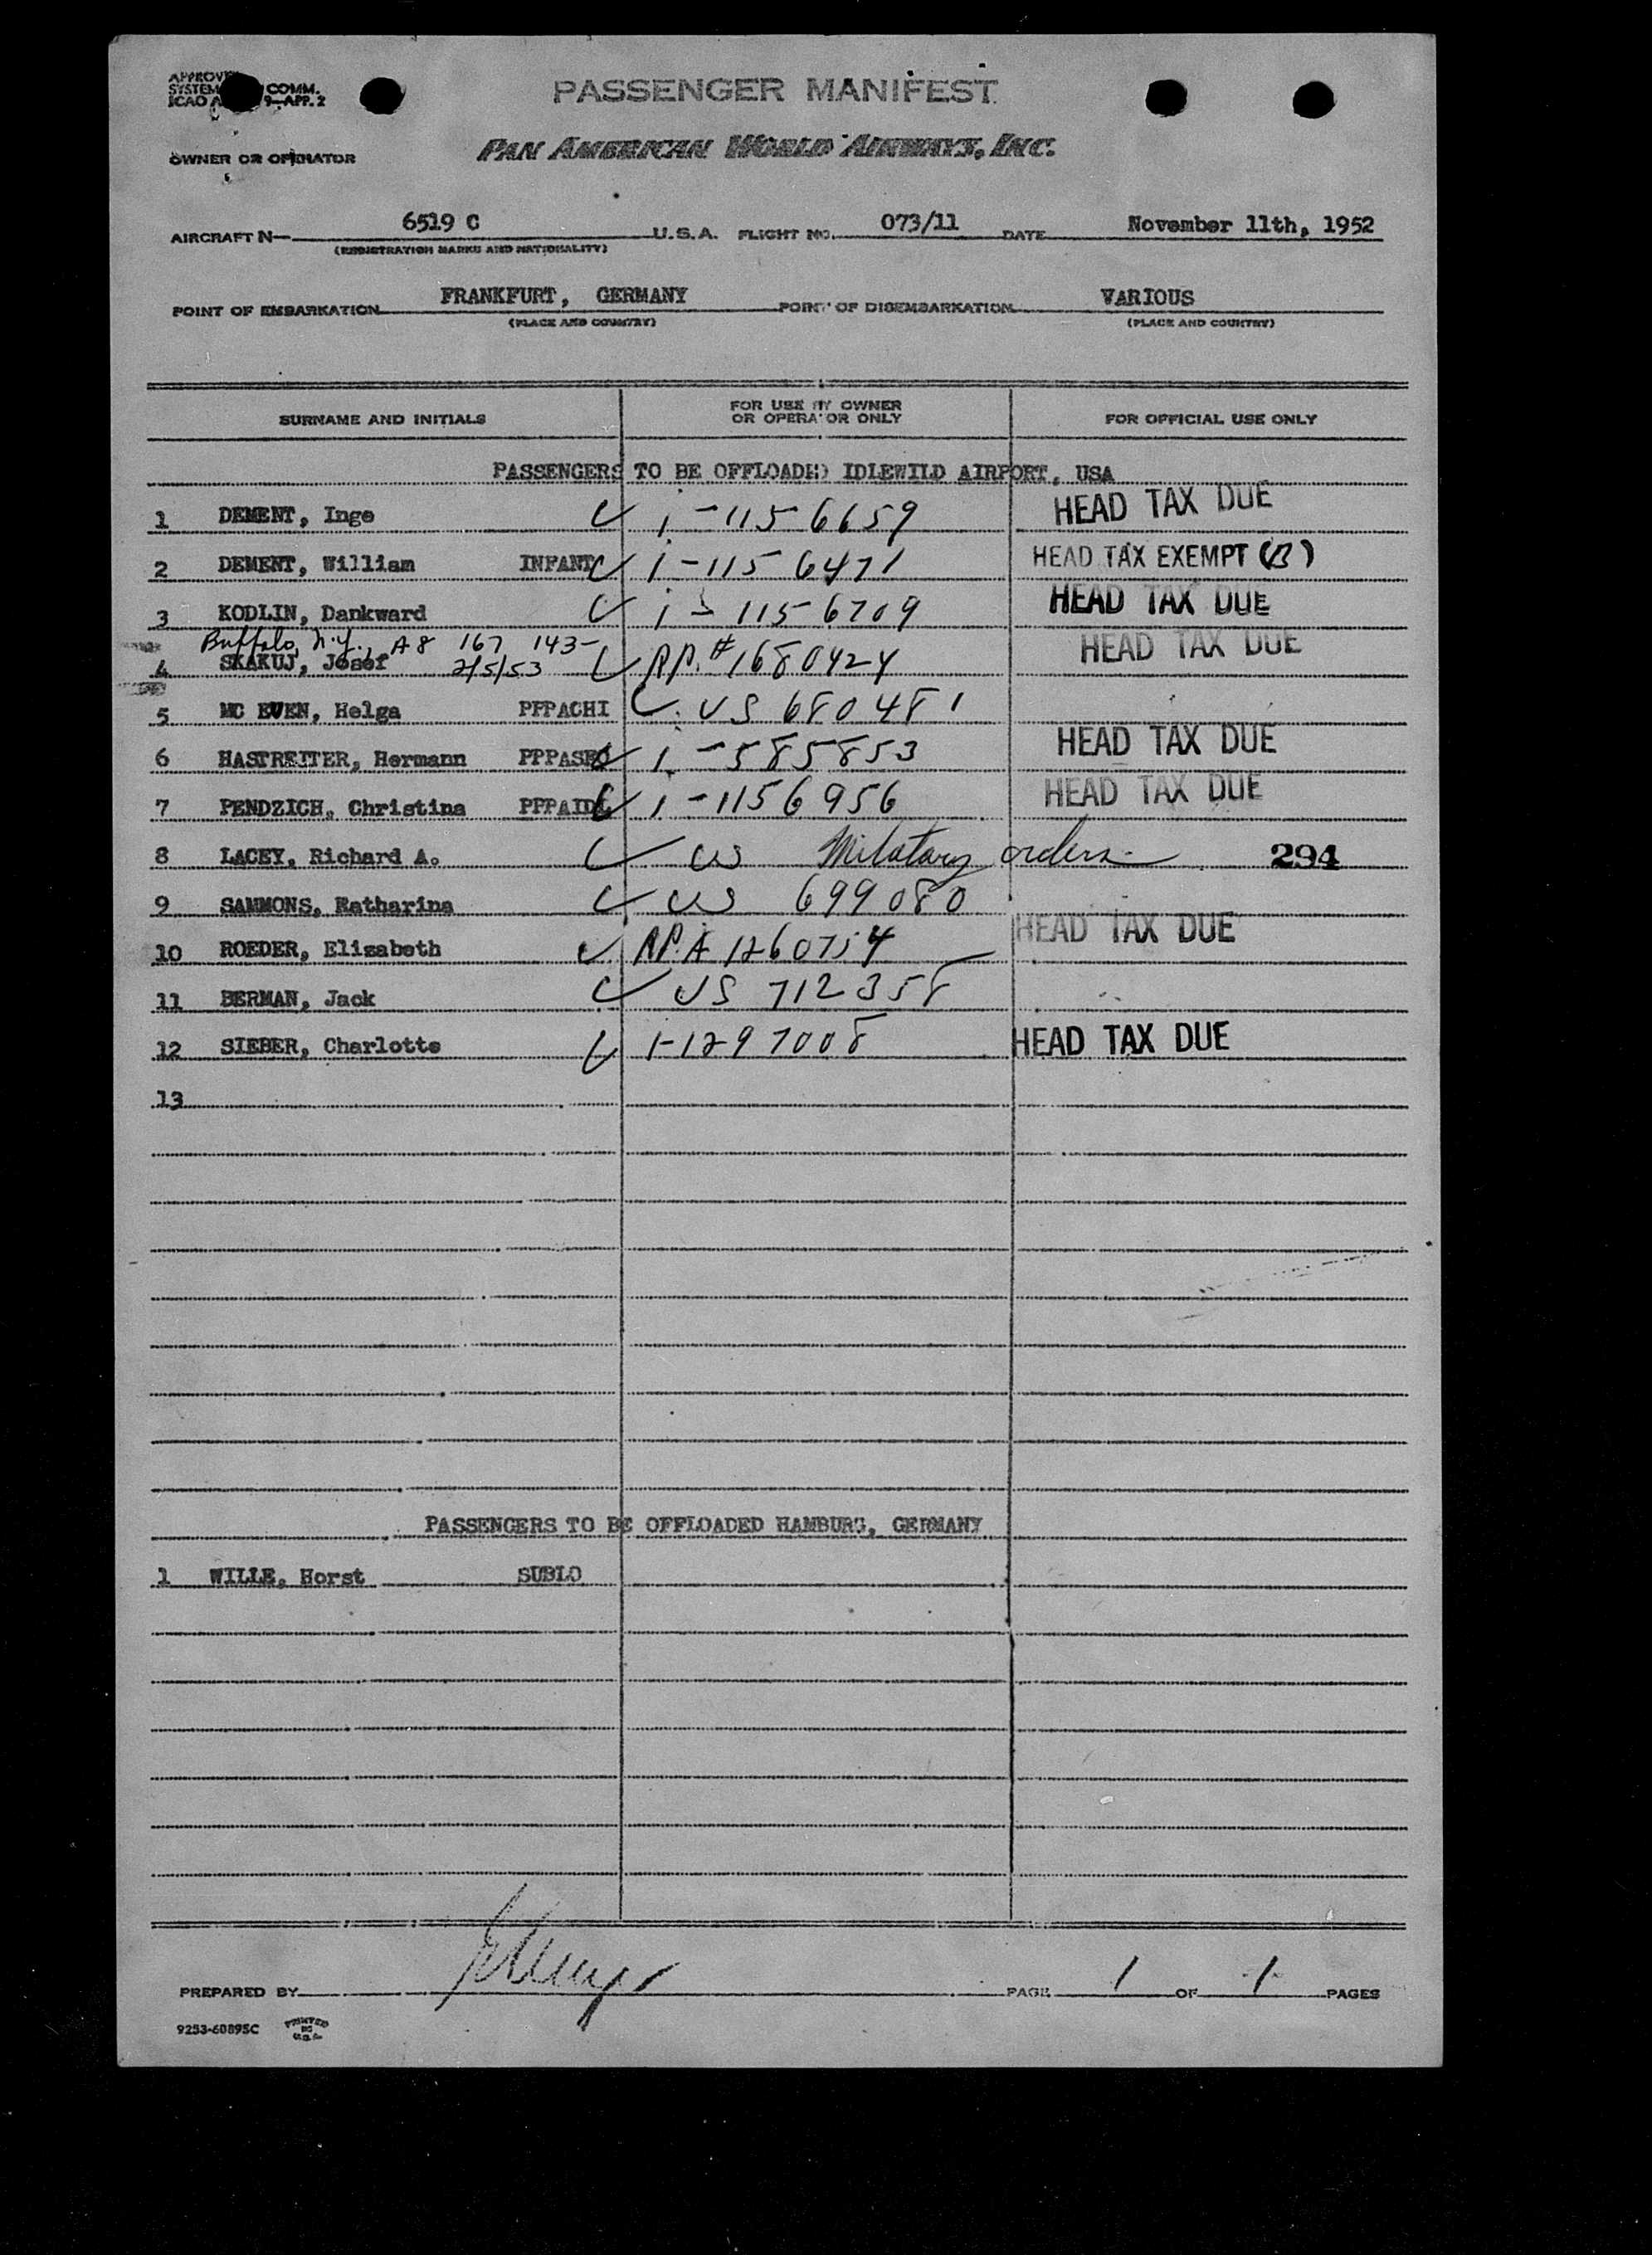 APPROVED COMM.
SYSTEM
ICAO 9-APP. 2
PASSENGER MANIFEST
OWNER OR OPERATOR PAN AMERICAN WORLD AIRWAYS, INC.
AIRCRAFT N— 6519 C U.S.A. FLIGHT NO. 073/11 DATE November 11th, 1952
(REGISTRATION MARKS AND NATIONALITY)
POINT OF EMBARKATION FRANKFURT, GERMANY POINT OF DISEMBARKATION VARIOUS
(PLACE AND COUNTRY) (PLACE AND COUNTRY)
SURNAME AND INITIALS FOR USE BY OWNER OR OPERATOR ONLY FOR OFFICIAL USE ONLY
PASSENGERS TO BE OFFLOADED IDLEWILD AIRPORT, USA
1 DEMENT, Inge i-1156659 HEAD TAX DUE
2 DEMENT, William INFANT 1-1156471 HEAD TAX EXEMPT (B)
3 KODLIN, Dankward i-1156709 HEAD TAX DUE
Buffalo, N.Y., A8 167 143-
4 SKAKUJ, Josef 2/5/53 RP.# 1680424 HEAD TAX DUE
5 MC EWEN, Helga PFPACHI US 680481
6 HASTREITER, Hermann PPPASEO i-585853 HEAD TAX DUE
7 PENDZICH, Christina PPPAIDL i-1156956 HEAD TAX DUE
8 LACEY, Richard A. US Military orders 294
9 SAMMONS, Katharina US 699080
10 ROEDER, Elizabeth RP.A 1260754 HEAD TAX DUE
11 BERMAN, Jack US 712358
12 SIEBER, Charlotte 1-1297008 HEAD TAX DUE
13
PASSENGERS TO BE OFFLOADED HAMBURG, GERMANY
1 WILLE, Horst SUBLO
PREPARED BY PAGE 1 OF 1 PAGES
9253-60895C PRINTED IN U.S.A.